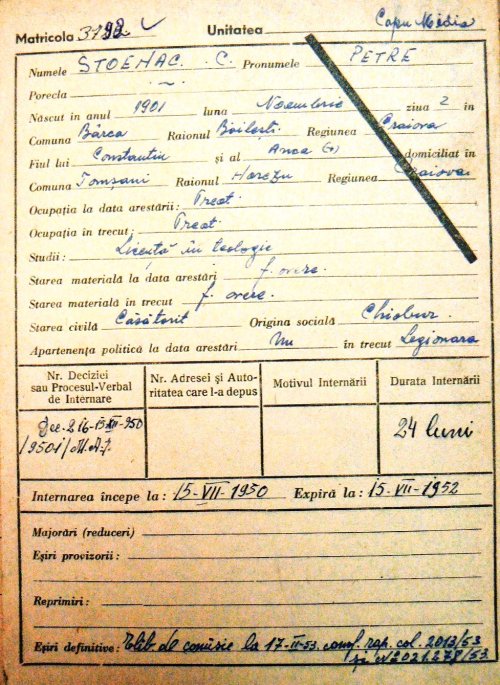 Capu Midia
Matricola 3798 Unitatea
Numele STOENAC C. Pronumele PETRE
Porecla ~
Născut în anul 1901 luna Noembrie ziua 2 în
Comuna Bârca Raionul Băilești Regiunea Craiova
Fiul lui Constantin și al Anca (+) domiciliat în
Comuna Tomșani Raionul Horezu Regiunea Craiova
Ocupația la data arestării: Preot
Ocupația în trecut: Preot
Studii: Licență în teologie
Starea materială la data arestări f. avere.
Starea materială în trecut f. avere.
Starea civilă Căsătorit Origina socială Chiabur
Apartenența politică la data arestări Nu în trecut Legionara
Nr. Deciziei
sau Procesul-Verbal
de Internare
Nr. Adresei și Auto-
ritatea care l-a depus
Motivul Internării
Durata Internării
Dec. 216-15-XII-950
24 luni
Internarea începe la: 15-VII-1950 Expiră la: 15-VII-1952
Majorări (reduceri)
Eșiri provizorii:
Reprimiri:
Eșiri definitive: Elib. de comisie la 17-II-53. conf. rap. col. 2013/53
și